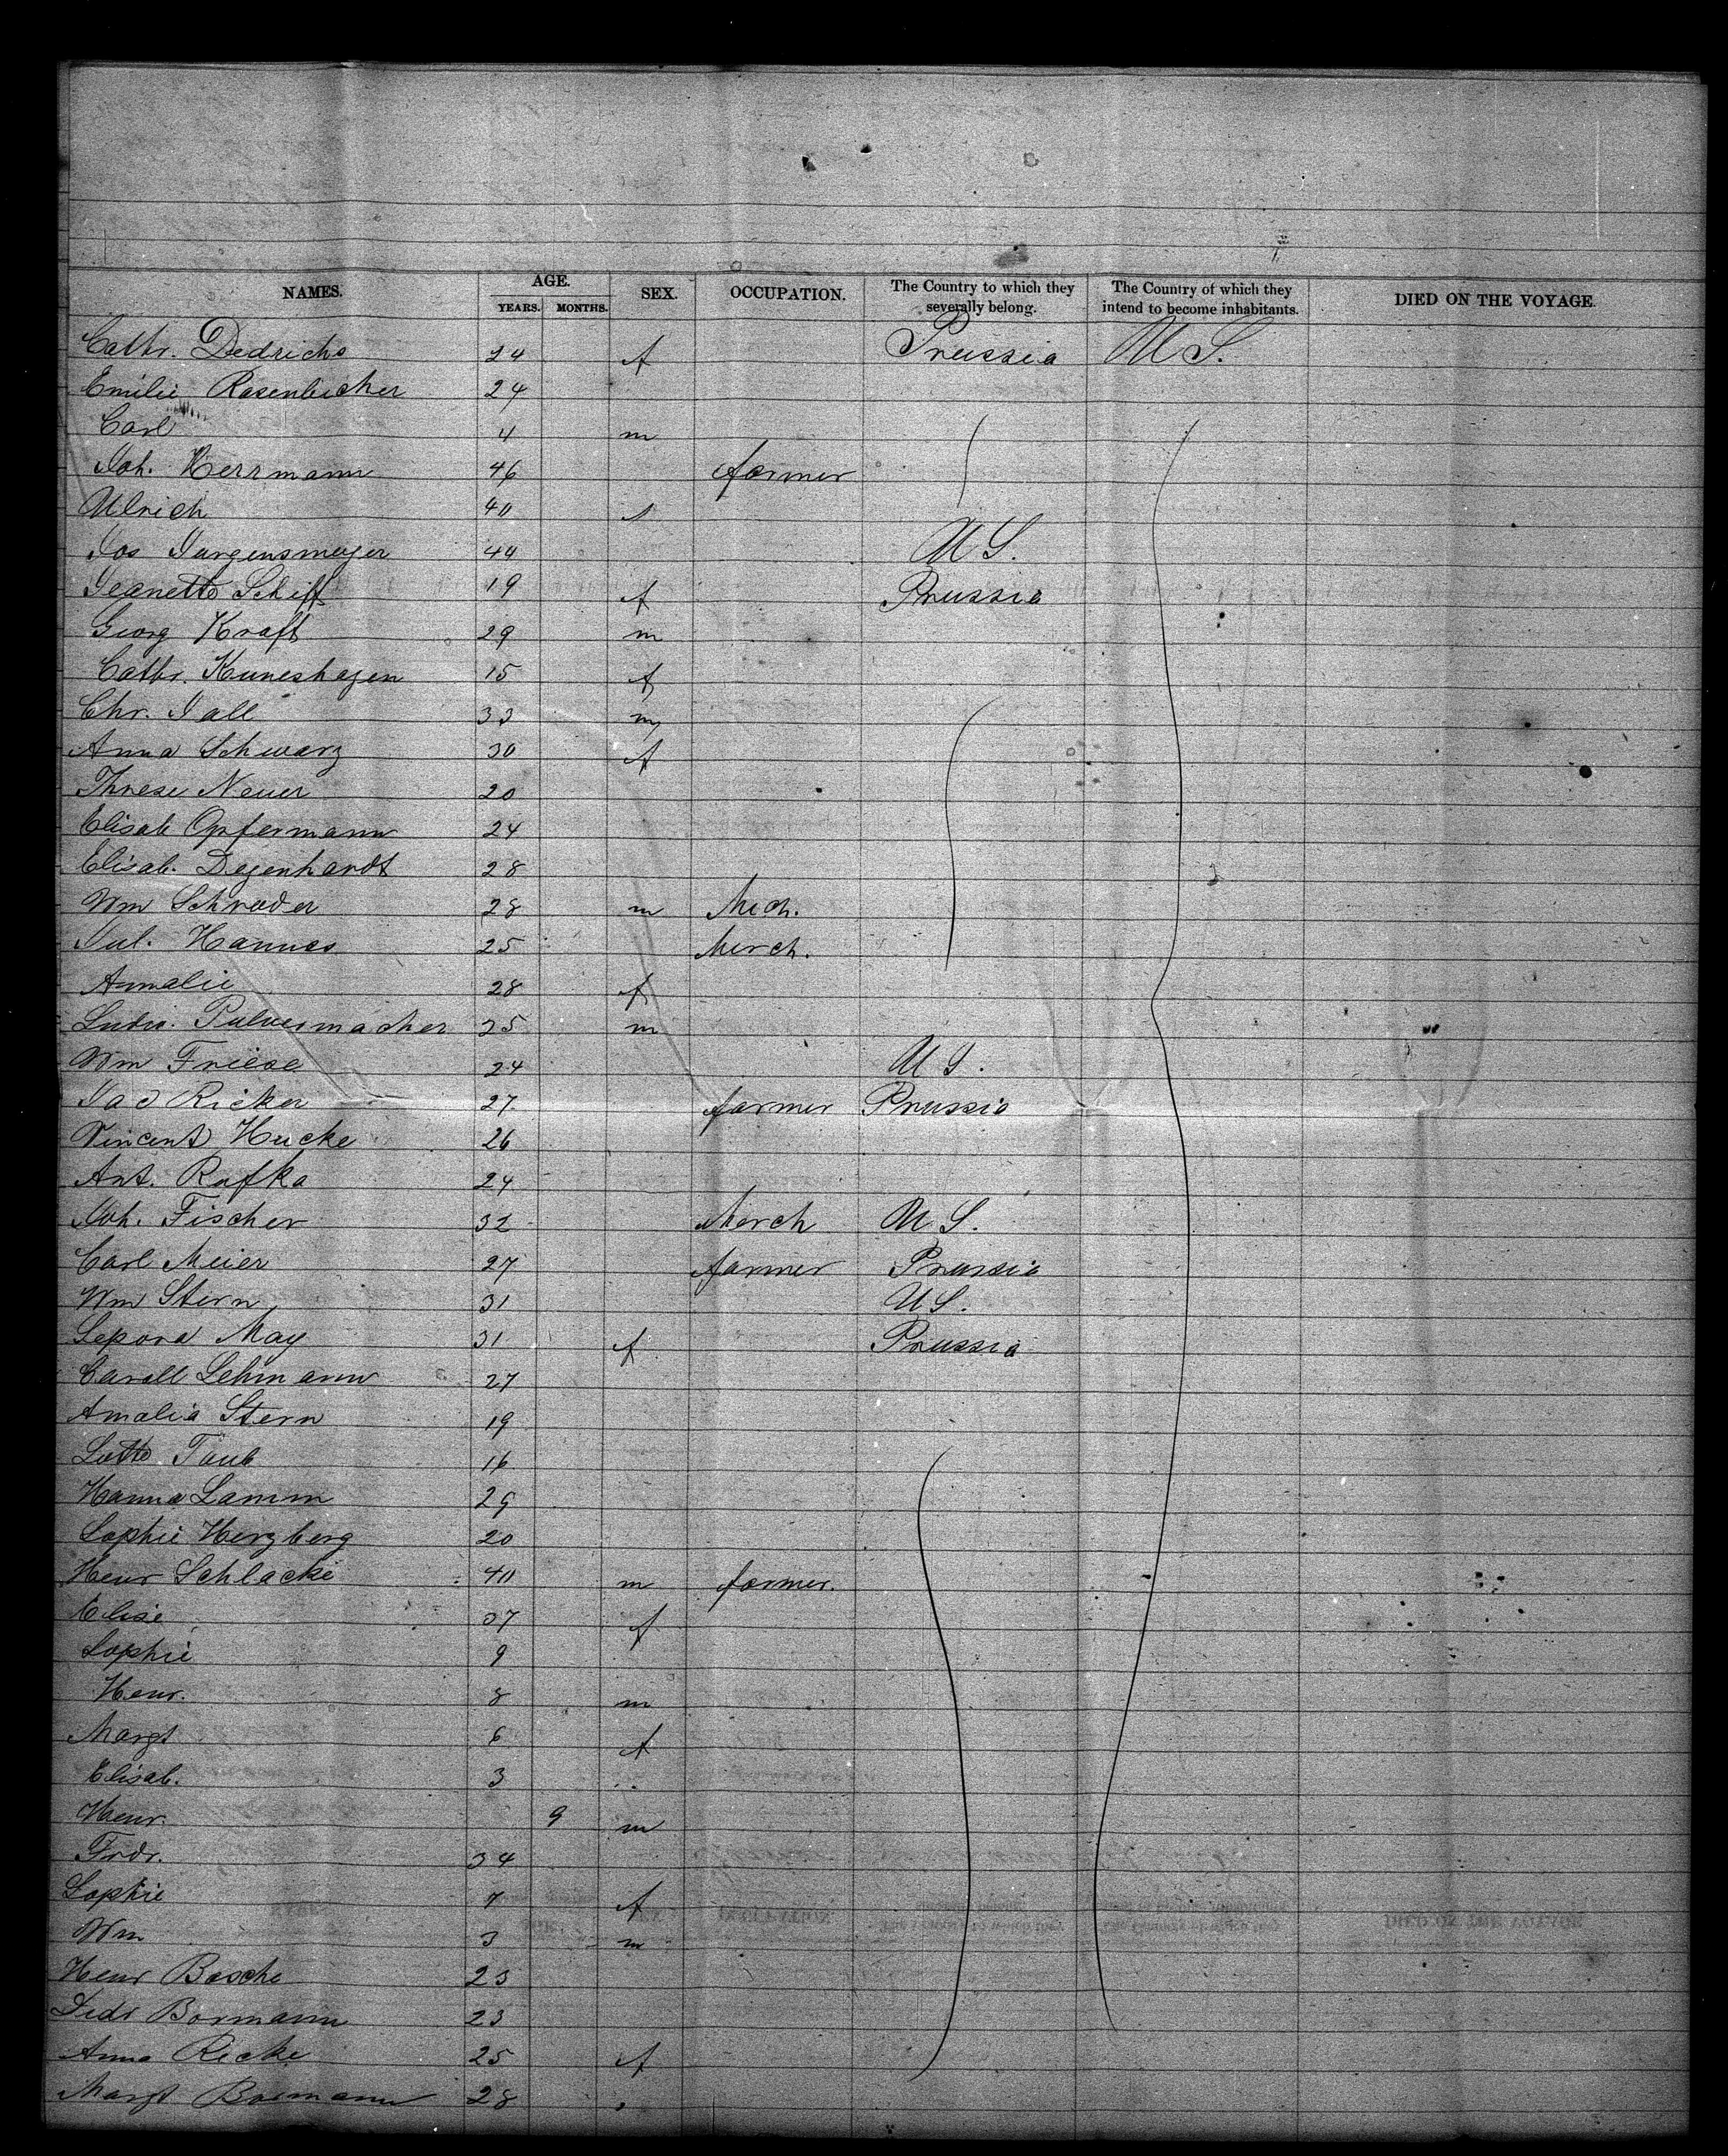 NAMES. AGE. SEX. OCCUPATION. The Country to which they severally belong. The Country of which they intend to become inhabitants. DIED ON THE VOYAGE.
YEARS. MONTHS.
Cathr. Dedrichs 24 f Prussia U S.
Emilie Rosenbucher 24
Carl 4 m
Joh. Herrmann 46 farmer
Ulrich 40
Jos Jurgensmeyer 44 U S.
Jeanette Schiff 19 f Prussia
Georg Kraft 29 m
Cathr. Kuneshagen 15 f
Chr. Jall 33 m
Anna Schwarz 30 f
Threse Neuer 20
Elisab Opfermann 24
Elisab. Degenhardt 28
Wm Schroder 28 m Mech.
Jul. Hannes 25 Merch.
Amalie 28 f
Ludw. Pulvermacher 25 m
Wm Friese 24 U S.
Jac Ricker 27 farmer Prussia
Vincent Hucke 26
Ant. Rafka 24
Joh. Fischer 32 Merch U S.
Carl Meier 27 farmer Prussia
Wm Stern 31 U S.
Lepora May 31 f Prussia
Caroll Lehmann 27
Amalia Stern 19
Lotte Taub 16
Hanna Lamm 29
Sophie Herzberg 20
Henr Schlacke 40 m farmer.
Elise 37 f
Sophie 9
Henr. 8 m
Margt 6 f
Elisab. 3 "
Henr. 9 m
Frdr. 34
Sophie 7 f
Wm 3 m
Henr Bosche 23
Diedr Bormann 23
Anna Recke 25 f
Margt Bormann 28 "